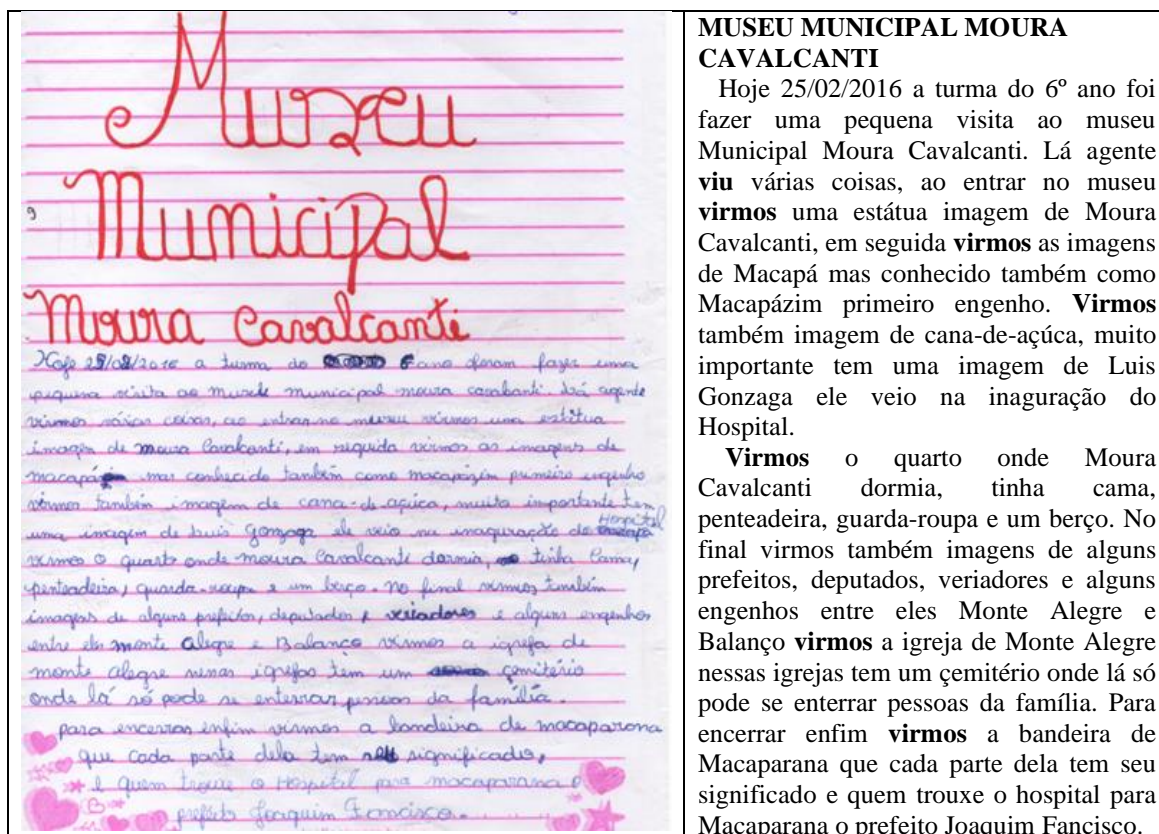 Muzeu
Municipal
Moura Cavalcanti
Hoje 25/02/2016 a turma do 6 ano foram fazer uma
pequena visita ao museu municipal moura cavalcanti. Lá agente
virmos várias coisas, ao entrar no museu virmos uma estátua
imagem de moura Cavalcanti, em seguida virmos as imagens de
macapá mas conhecido também como macapázim primeiro engenho
virmos também imagem de cana-de-açúca, muito importante tem
uma imagem de Luis Gonzaga ele veio na inaguração do Hospital
virmos o quarto onde moura Cavalcanti dormia, tinha Cama,
penteadeira, guarda-roupa e um berço. no final virmos também
imagens de alguns prefeitos, deputados, veriadores e alguns engenhos
entre eles monte alegre e Balanço virmos a igreja de
monte alegre nessas igrejas tem um çemitério
onde lá só pode se enterrar pessoas da família.
para encerrar enfim virmos a bandeira de macaparana
que cada parte dela tem seu significado,
e quem trouxe o Hospital para macaparana o
prefeito Joaquim Francisco.
MUSEU MUNICIPAL MOURA
CAVALCANTI
Hoje 25/02/2016 a turma do 6º ano foi
fazer uma pequena visita ao museu
Municipal Moura Cavalcanti. Lá agente
viu várias coisas, ao entrar no museu
virmos uma estátua imagem de Moura
Cavalcanti, em seguida virmos as imagens
de Macapá mas conhecido também como
Macapázim primeiro engenho. Virmos
também imagem de cana-de-açúca, muito
importante tem uma imagem de Luis
Gonzaga ele veio na inaguração do
Hospital.
Virmos o quarto onde Moura
Cavalcanti dormia, tinha cama,
penteadeira, guarda-roupa e um berço. No
final virmos também imagens de alguns
prefeitos, deputados, veriadores e alguns
engenhos entre eles Monte Alegre e
Balanço virmos a igreja de Monte Alegre
nessas igrejas tem um çemitério onde lá só
pode se enterrar pessoas da família. Para
encerrar enfim virmos a bandeira de
Macaparana que cada parte dela tem seu
significado e quem trouxe o hospital para
Macaparana o prefeito Joaquim Fancisco.